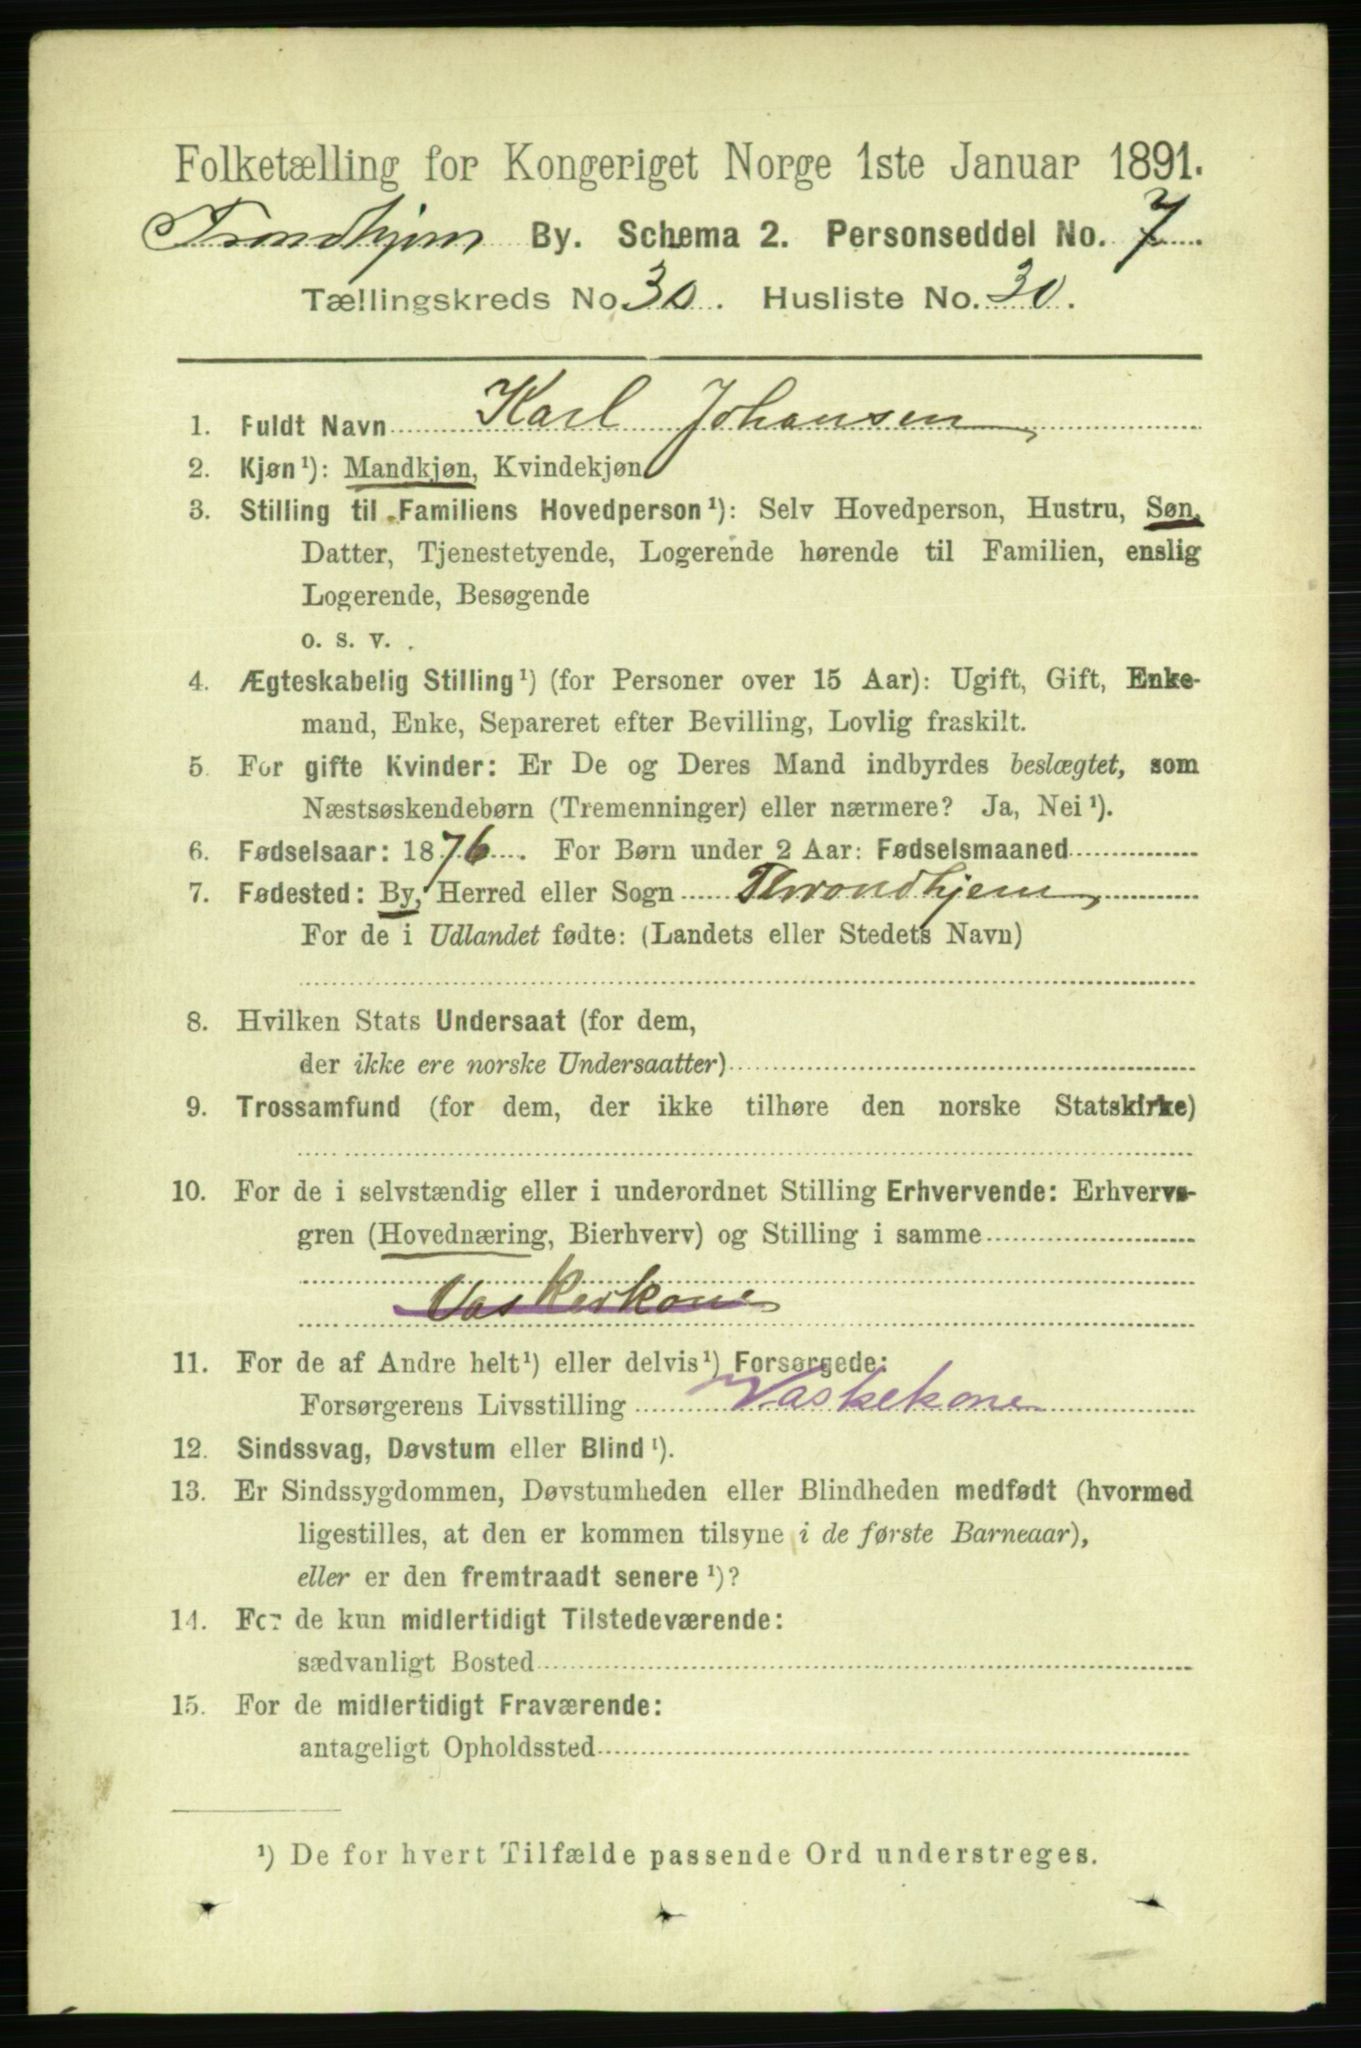 Folketælling for Kongeriget Norge 1ste Januar 1891.
Trondhjem By. Schema 2. Personseddel No. 7.
Tællingskreds No 30. Husliste No. 30.
1. Fuldt Navn Karl Johansen
2. Kjøn¹): Mandkjøn, Kvindekjøn
3. Stilling til Familiens Hovedperson¹): Selv Hovedperson, Hustru, Søn,
Datter, Tjenestetyende, Logerende hørende til Familien, enslig
Logerende, Besøgende
o. s. v. .
4. Ægteskabelig Stilling¹) (for Personer over 15 Aar): Ugift, Gift, Enke-
mand, Enke, Separeret efter Bevilling, Lovlig fraskilt.
5. For gifte Kvinder: Er De og Deres Mand indbyrdes beslægtet, som
Næstsøskendebørn (Tremenninger) eller nærmere? Ja, Nei¹).
6. Fødselsaar: 1876. For Børn under 2 Aar: Fødselsmaaned
7. Fødested: By, Herred eller Sogn Throndhjem
For de i Udlandet fødte: (Landets eller Stedets Navn)
8. Hvilken Stats Undersaat (for dem,
der ikke ere norske Undersaatter)
9. Trossamfund (for dem, der ikke tilhøre den norske Statskirke)
10. For de i selvstændig eller i underordnet Stilling Erhvervende: Erhvervs-
gren (Hovednæring, Bierhverv) og Stilling i samme
Vaskerkone
11. For de af Andre helt¹) eller delvis¹) Forsørgede:
Forsørgerens Livsstilling Vaskekone
12. Sindssvag, Døvstum eller Blind¹).
13. Er Sindssygdommen, Døvstumheden eller Blindheden medfødt (hvormed
ligestilles, at den er kommen tilsyne i de første Barneaar),
eller er den fremtraadt senere¹)?
14. For de kun midlertidigt Tilstedeværende:
sædvanligt Bosted
15. For de midlertidigt Fraværende:
antageligt Opholdssted
¹) De for hvert Tilfælde passende Ord understreges.